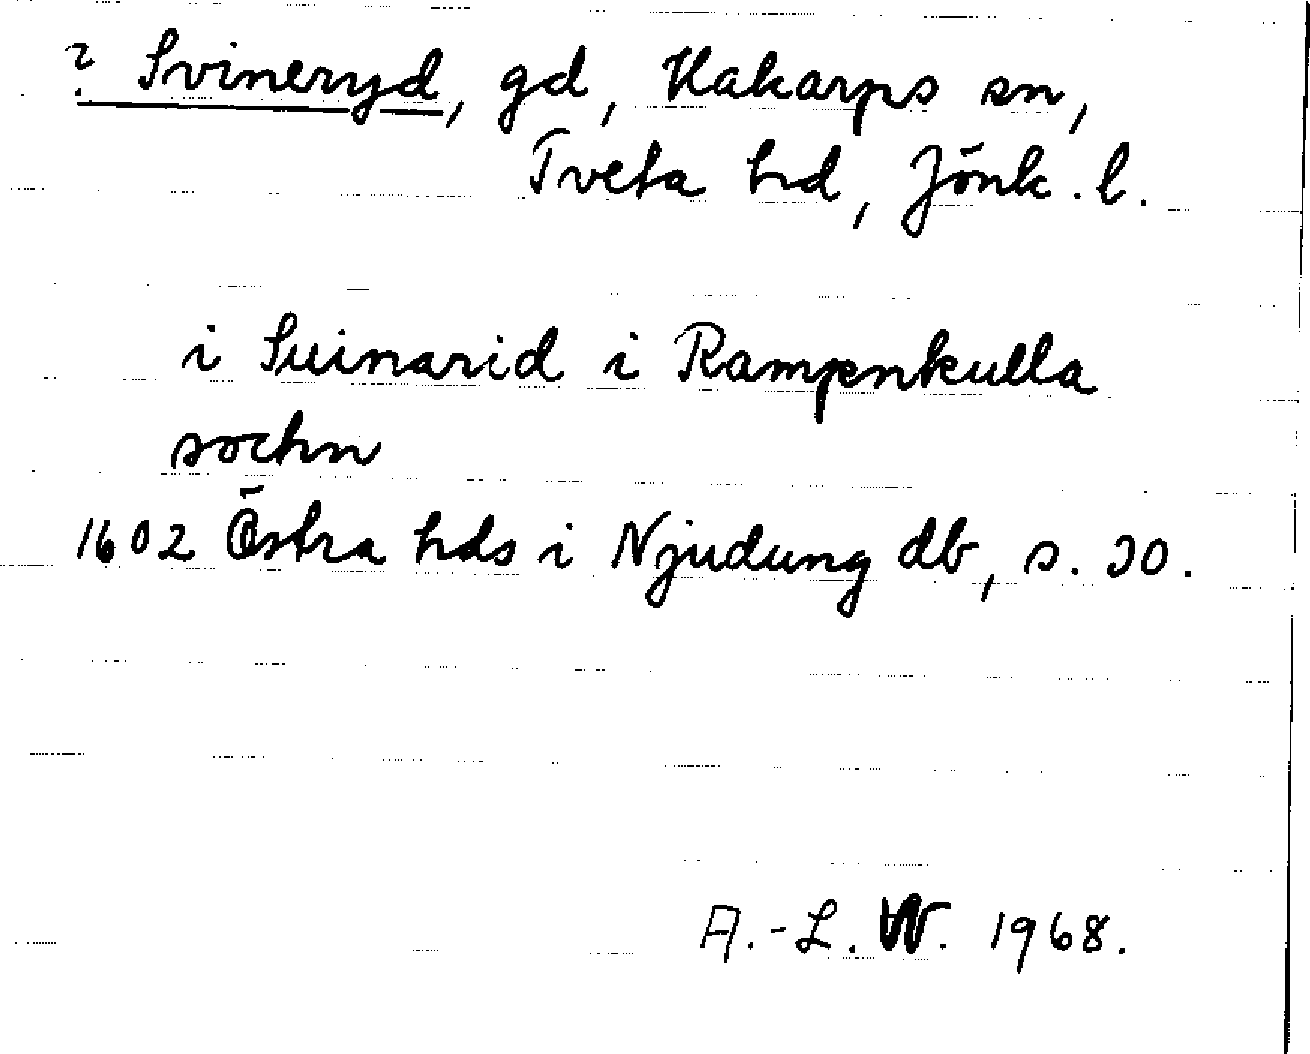 ? Svineryd, gd, Hakarps sn,
Tveta hd, Jönk. l.
i Suinarid i Rampenkulla
sochn
1602 Östra hds i Njudung db, s. 30.
A.-L. W. 1968.